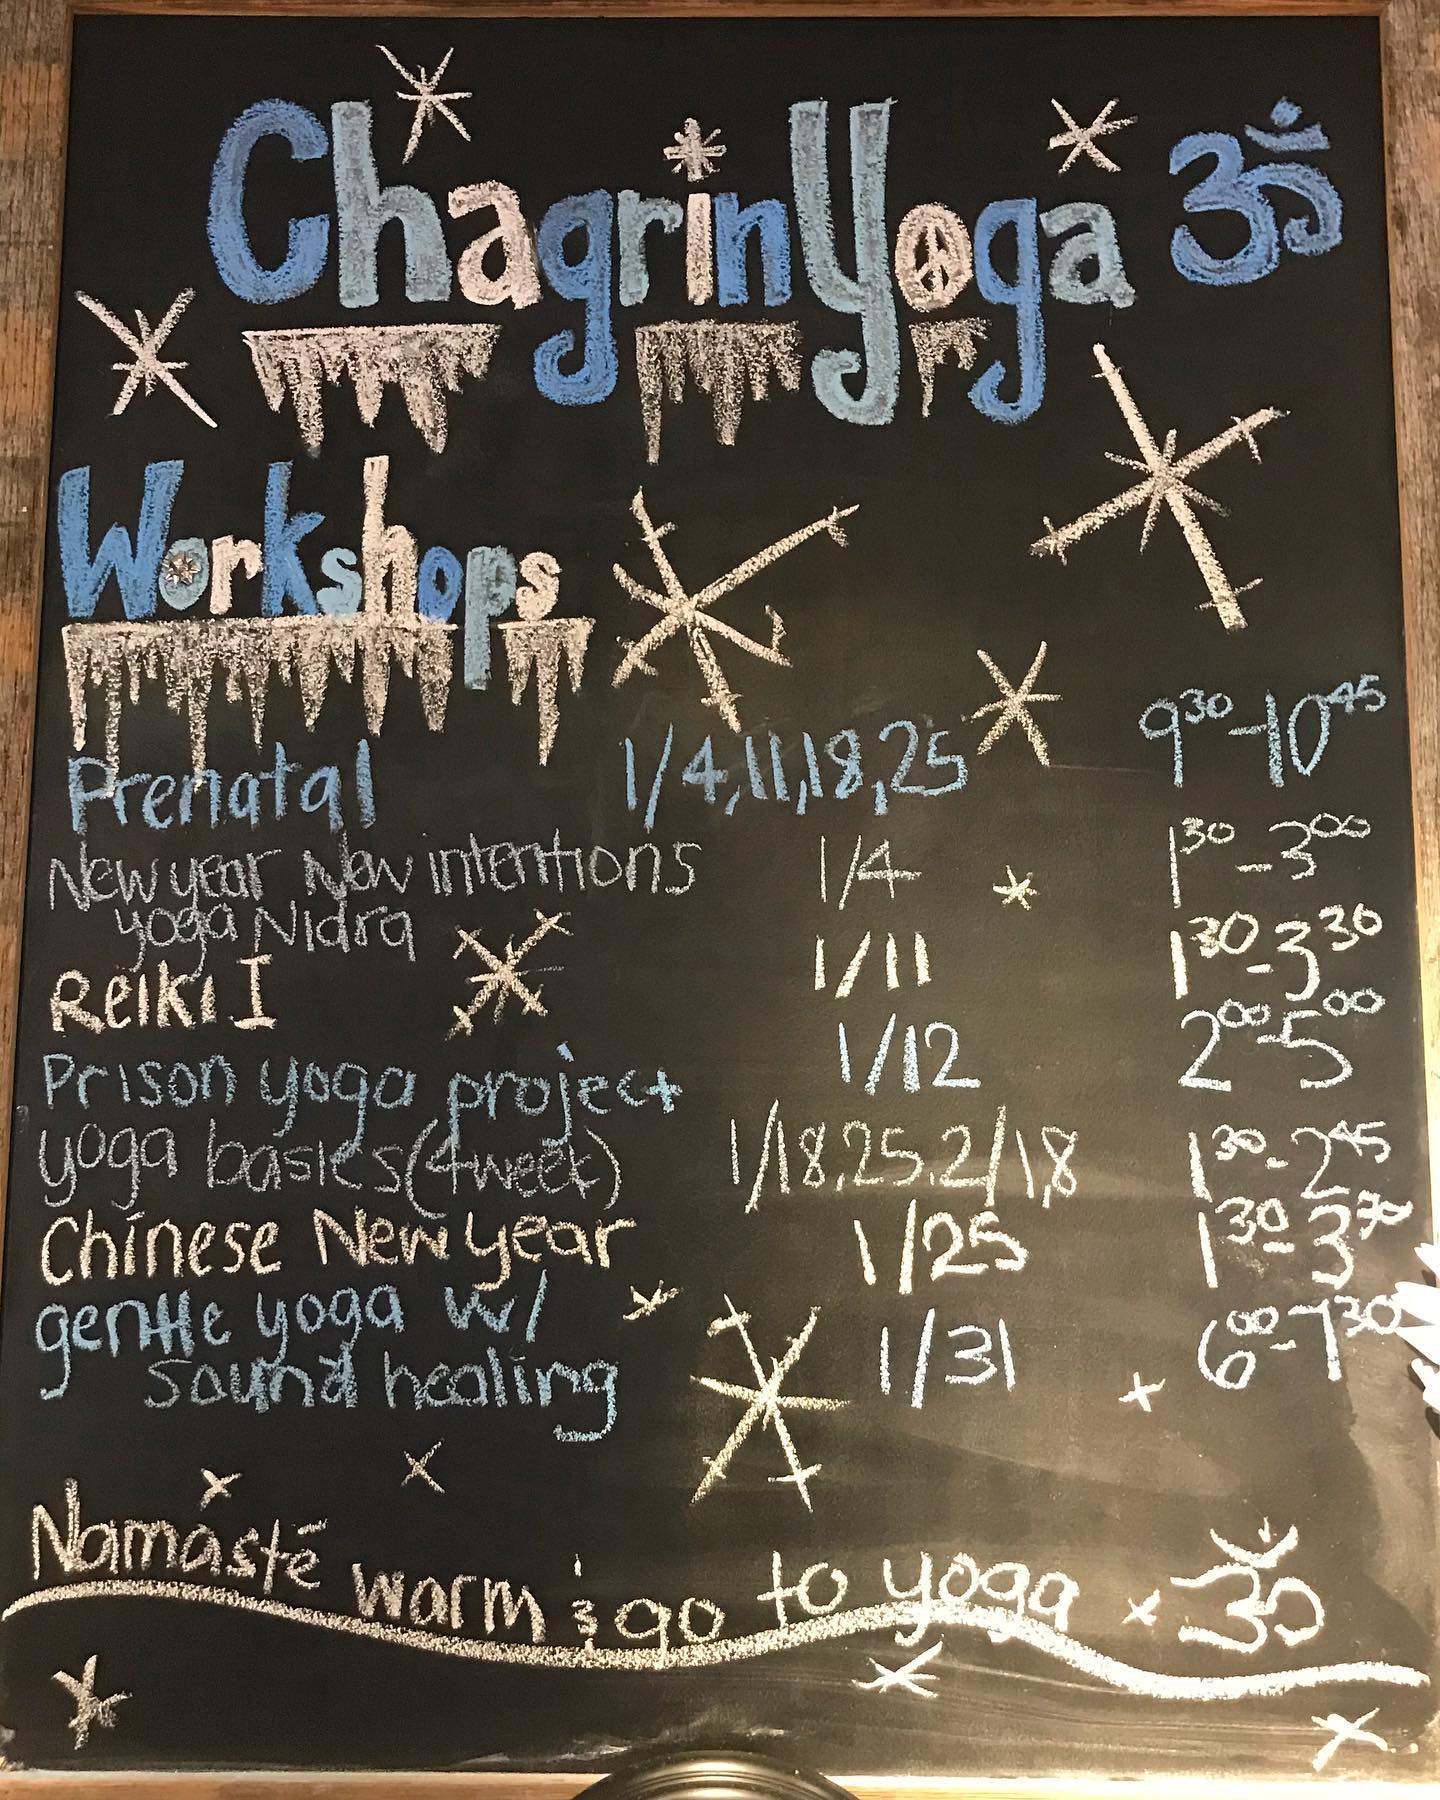 Chagrin Yoga ॐ
Workshops
Prenatal 1/4,11,18,25 9³⁰-10⁴⁵
New year New intentions 1/4 1³⁰-3⁰⁰
yoga Nidra
Reiki I 1/11 1³⁰-3³⁰
Prison yoga project 1/12 2⁰⁰-5⁰⁰
yoga basics (4 week) 1/18,25,2/1,8 1³⁰-2⁴⁵
Chinese New year 1/25 1³⁰-3³⁰
gentle yoga w/ 1/31 6⁰⁰-7³⁰
sound healing
Namasté warm & go to yoga ॐ